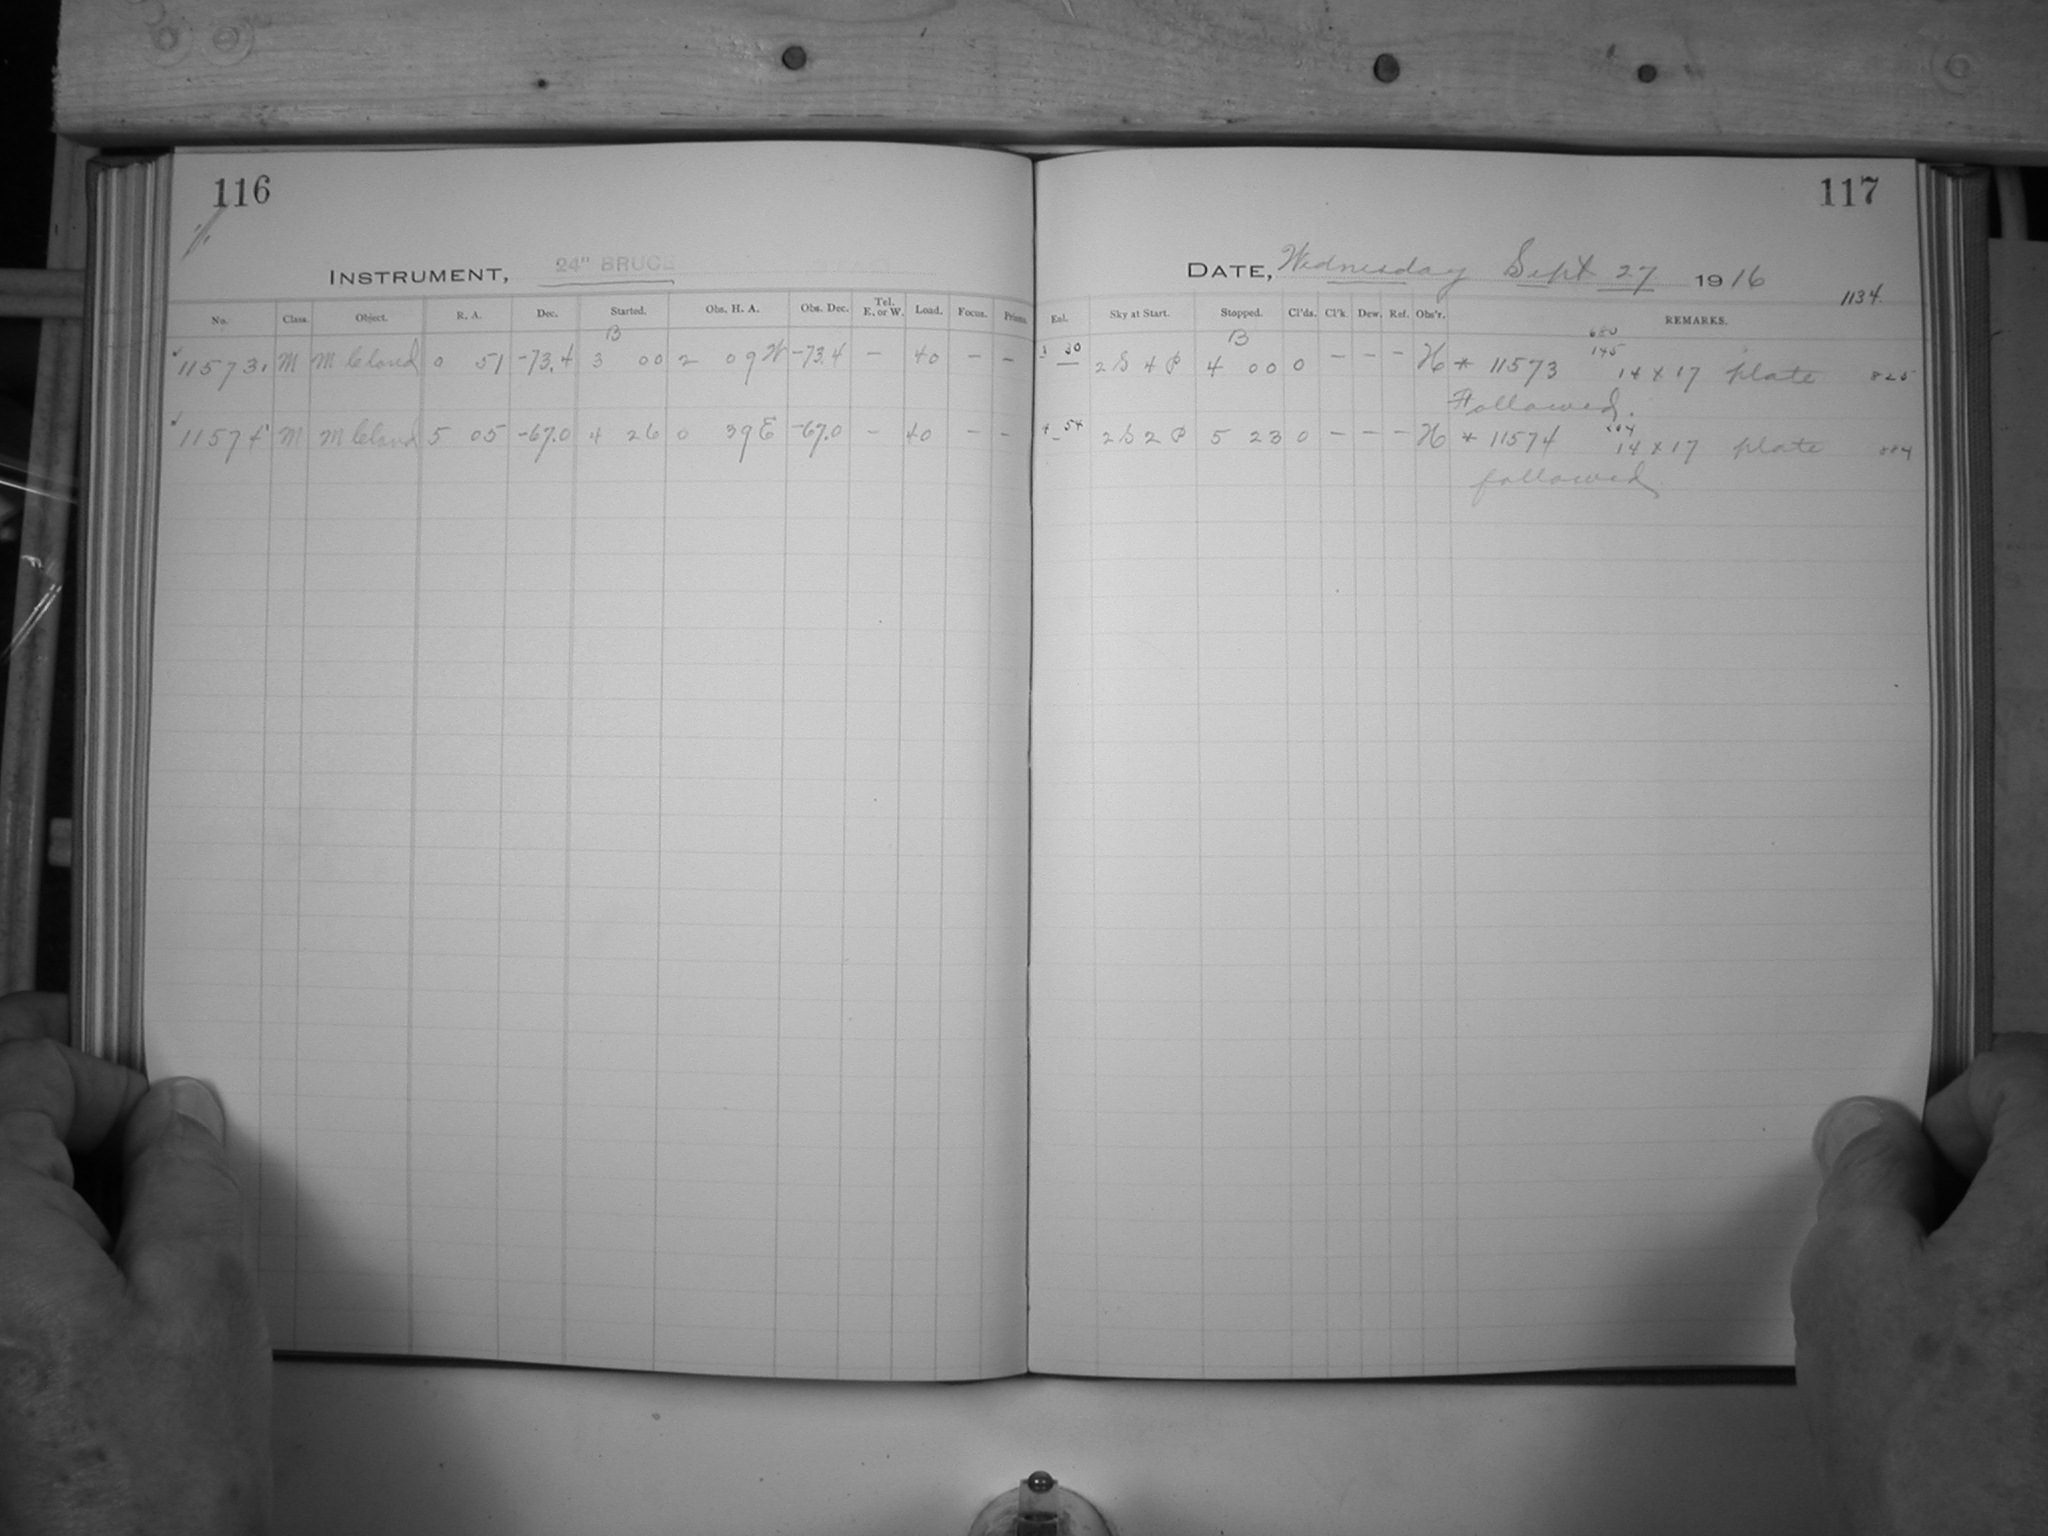 116
INSTRUMENT, 24" BRUCE
No. Class. Object. R. A. Dec. Started. Obs. H. A. Obs. Dec. Tel. E. or W. Load. Focus. Prisms.
B
11573 M M Cloud 0 51 -73.4 3 00 2 09 W -73.4 - 40 - -
11574 M M Cloud 5 05 -67.0 4 26 0 39 E -67.0 - 40 - -
117
DATE, Wednesday Sept 27 1916
1134
Eal. Sky at Start. Stopped. Cl'ds. Cl'k. Dew. Ref. Obs'r. REMARKS.
B
30 2 S 4 P 4 00 0 - - - H * 11573 14 x 17 plate
145
Followed.
4 54 2 S 2 P 5 23 0 - - - H * 11574 14 x 17 plate
followed